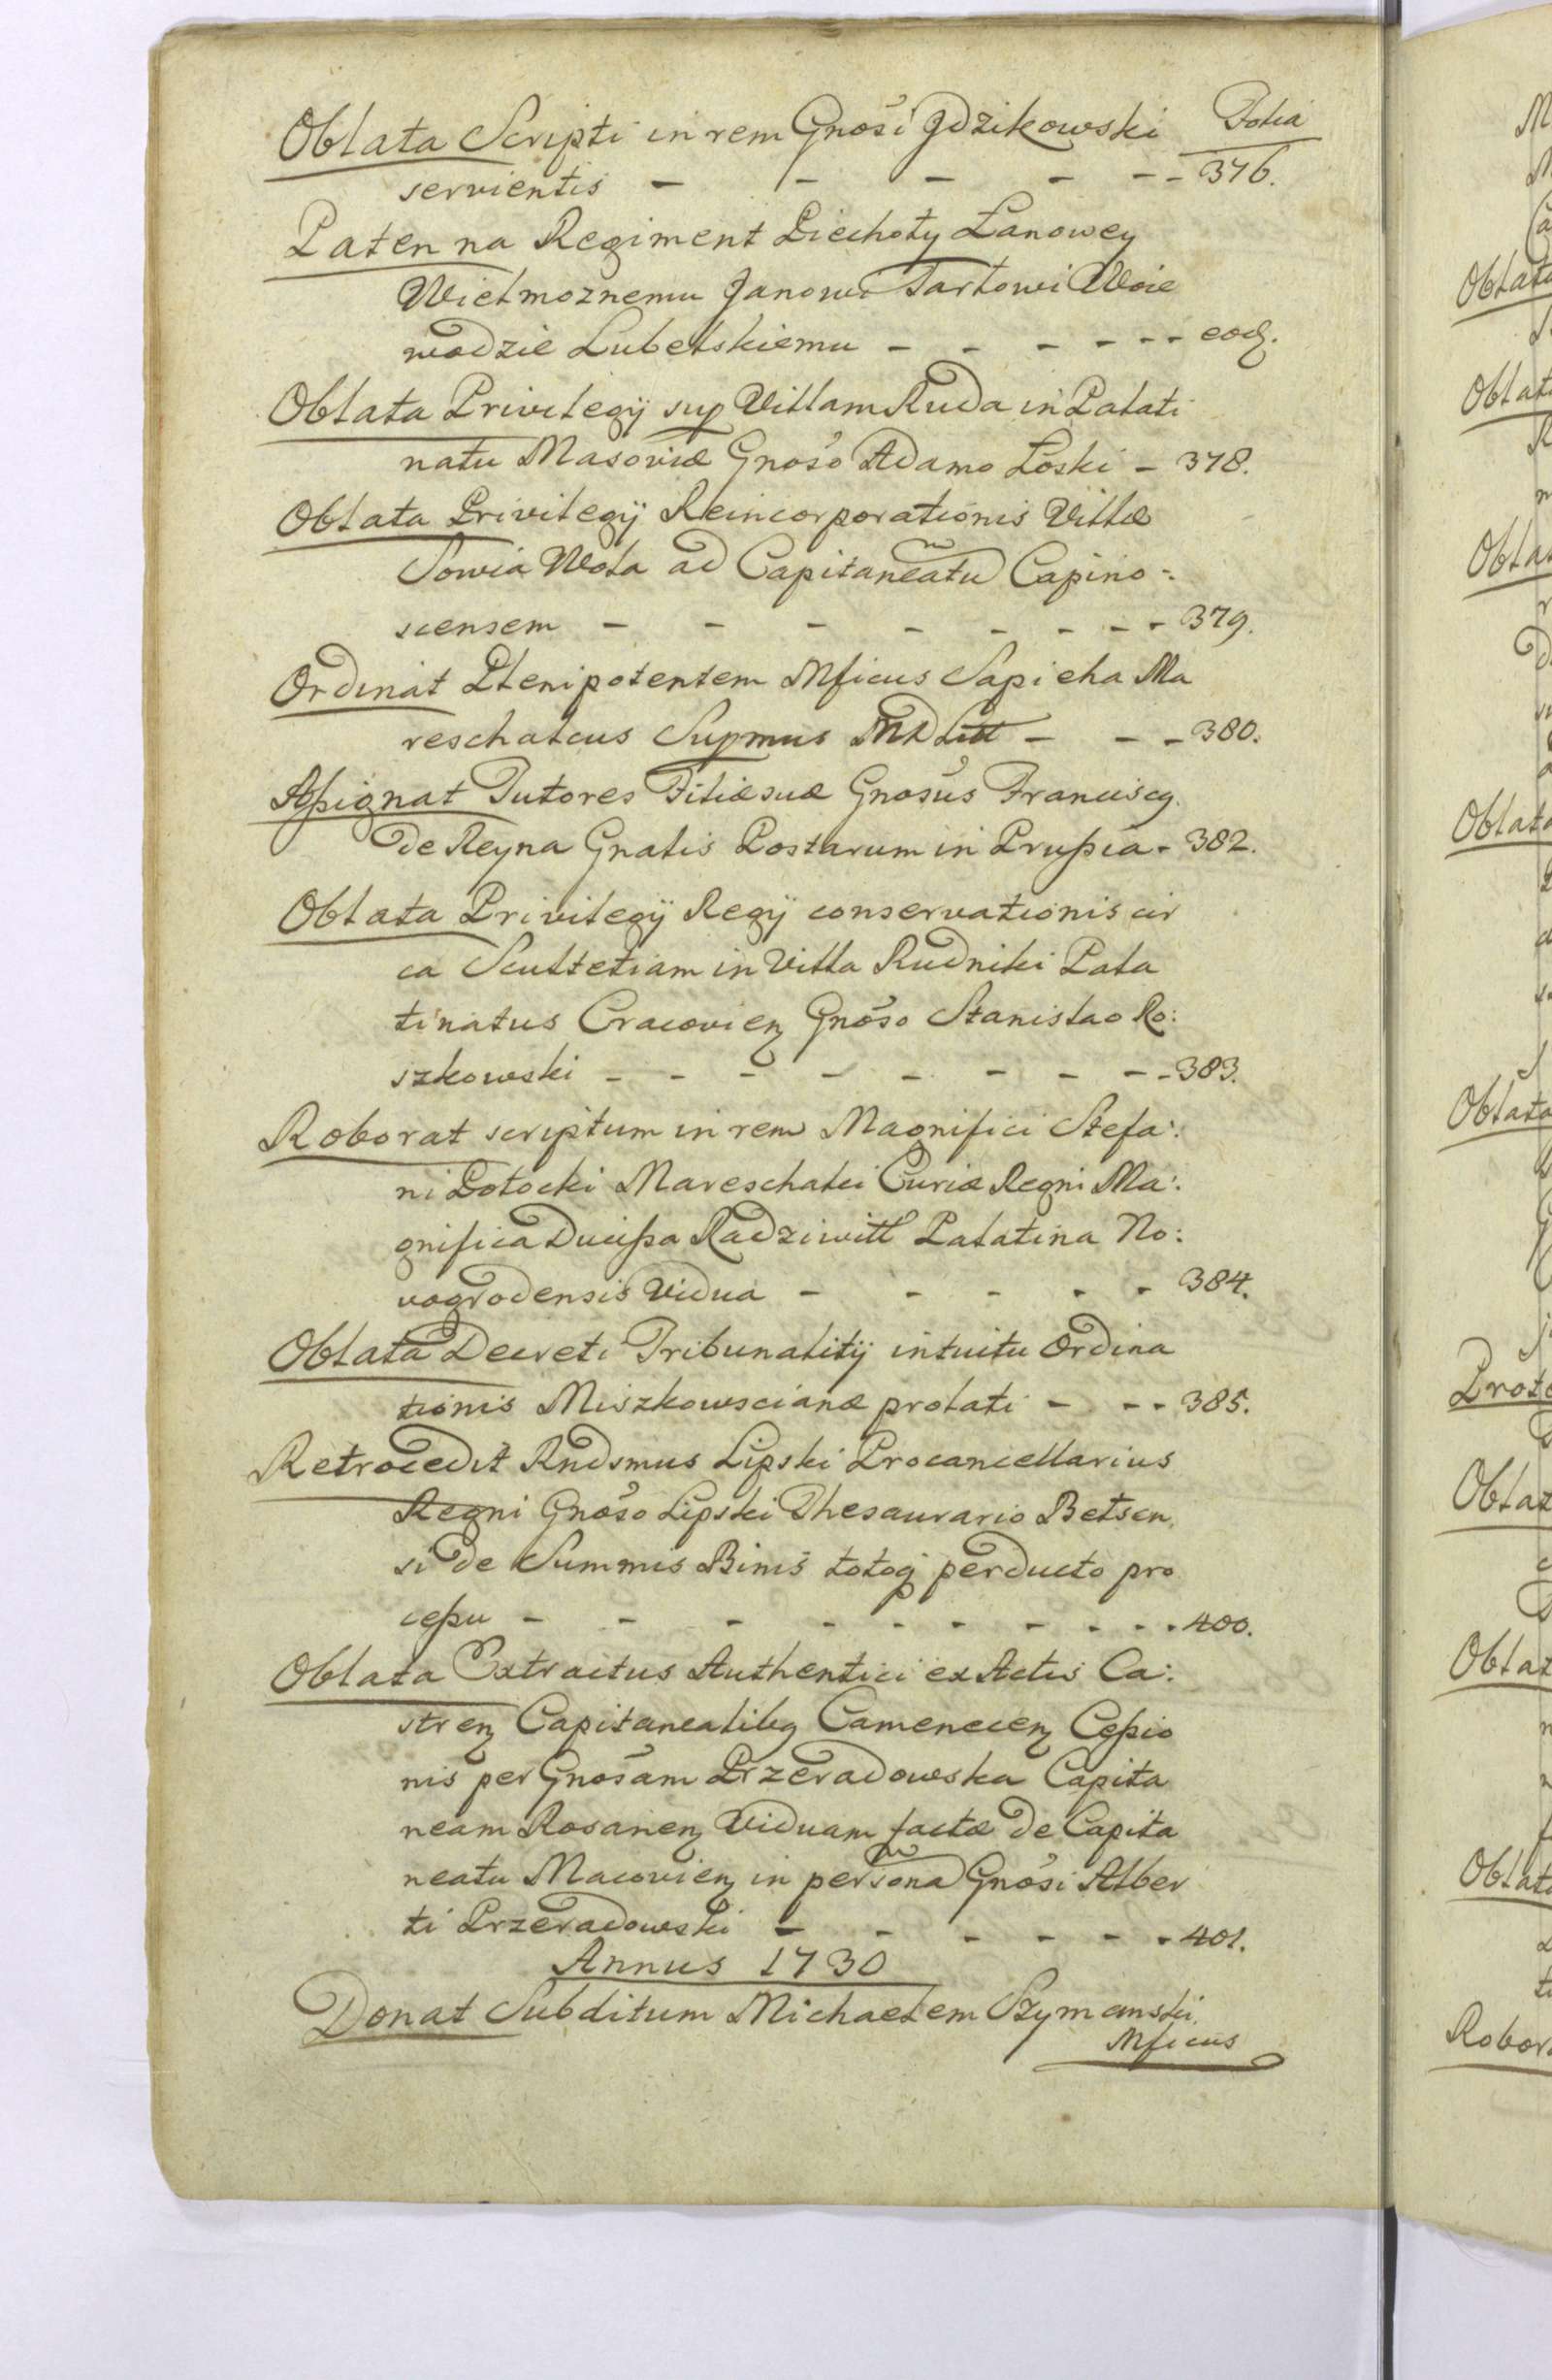 Folia
Oblata Scripti in rem Gnosi Gdzikowski
servientis - - - - - - 376.
Paten na Regiment Piechoty Łanowey
Wielmoznemu Janowi Tarłowi Woie
wodzie Lubelskiemu - - - - - - eod.
Oblata Privilegÿ sup Villam Ruda in Palati
natu Masoviæ Gnoso Adamo Łoski - 378.
Oblata Privilegÿ Reincorporationis Villæ
Sowia Wola ad Capitaneatu Capino =
scensem - - - - - - - - 379.
Ordinat Plenipotentem Mficus Sapieha Ma
reschalcus Supmus MDLitt - - - 380.
Aſsignat Tutores Filiæ suæ Gnosus Francisc9
de Reyna Gnalis Postarum in Pruſsia - 382.
Oblata Privilegÿ Regÿ conservationis cir
ca Scultetiam in Villa Rudniki Pala
tinatus Cracovien Gnoso Stanislao Ro:
szkowski - - - - - - - - - 383.
Roborat scriptum in rem Magnifici Stefa:
ni Potocki Mareschalci Curiæ Regni Ma:
gnifica Duciſsa Radziwill Palatina No:
vogrodensis Vidua - - - - - 384.
Oblata Decreti Tribunalitÿ intuitu Ordina
tionis Miszkowscianæ prolati - - - 385.
Retrocedit Rndsmus Lipski Procancellarius
Regni Gnoso Lipski Thesaurario Belsen
si de Summis Binis totoq perducto pro
ceſsu - - - - - - - - - 400.
Oblata Extractus Authentici ex Actis Ca:
stren Capitanealib9 Camenecen Ceſsio
nis per Gnosam Przeradowska Capita
neam Rosanien Viduam factæ de Capita
neatu Macovien in persona Gnosi Alber
ti Przeradowski - - - - - - 401.
Annus 1730
Donat Subditum Michaelem Szymanski
Mficus